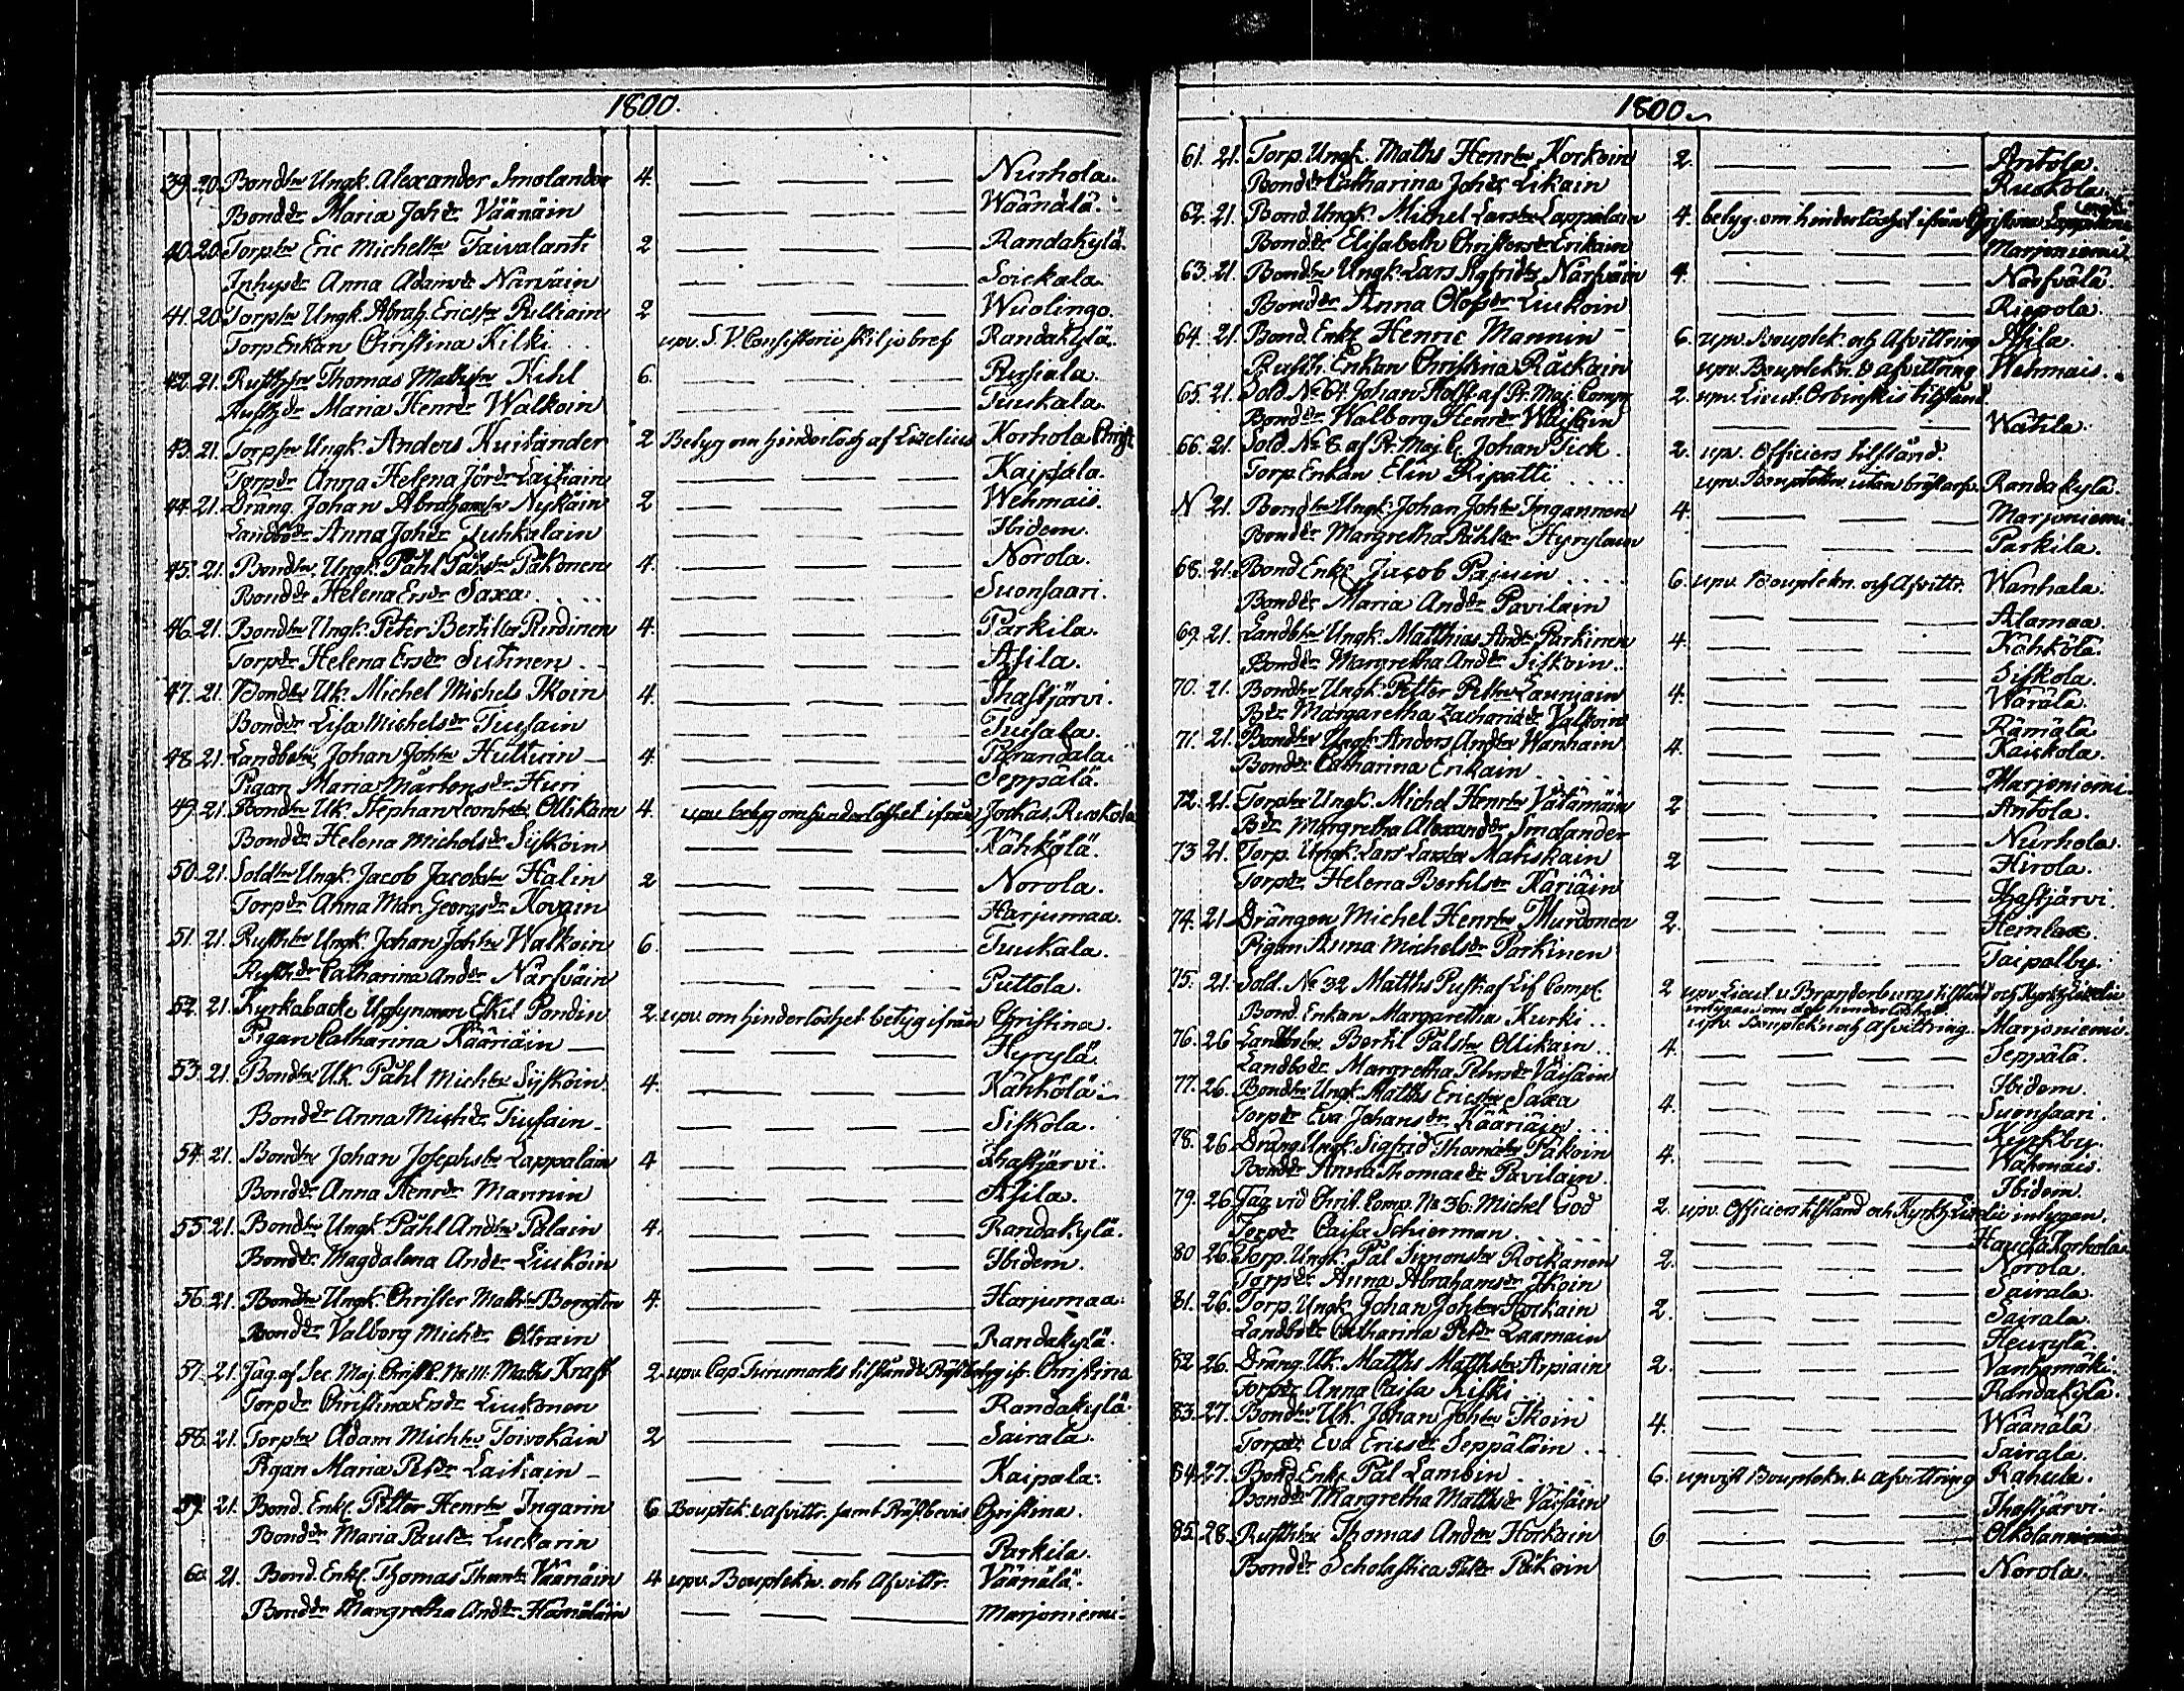 1800.
39. 20. Bondsn Ungk. Alexander Smolander 4. Nurhola.
Bonddr Maria Johdr Väänäin Wäänälä.
40. 20. Torpsn Eric Michelsn Taivalanti 2 Randakylä.
Inhysdr Anna Adamsdr Närväin Soickala.
41. 20. Torpsn Ungk. Abrah. Ericssn Pulliain 2 Wuolingo.
Torp Enkan Christina Kilki upv. S. V. Consistorii skiljobref Randakylä.
42. 21. Rusthsn Thomas Mathssn Kihl 6. Pusiala.
Rusthdr Maria Henrdr Walkoin Tuukala.
43. 21. Torpsn Ungk. Anders Kuitander 2 Betyg om hinderlösh af Lizelius Korhola Christ
Torpdr Anna Helena Jördr Laitiain Kaipala.
44. 21. Dräng. Johan Abrahamsn Nykäin 2 Wehmais.
Landbodr Anna Johdr Tuhkalain Ibidem.
45. 21. Bondsn. Ungk. Påhl Pålssn Pakonen 4. Norola.
Bonddr Helena Ersdr Saxa Suonsaari.
46. 21. Bondsn Ungk. Peter Bertilsn Purdinen 4. Parkila.
Torpdr Helena Ersdr Sutinen Asila.
47. 21. Bondsn Uk. Michel Michels Ikoin 4. Ihastjärvi.
Bonddr Lisa Michelsdr Tiusain Tuisala.
48. 21. Landbosn Johan Johsn Hultuin 4. Parandala.
Pigan Maria Mårtensdr Huri Seppälä.
49. 21. Bondsn Uk. Stephan Leonhsn Ollikain 4. upv. betyg om hinderlöshet ifrån Jockas, Ruokola
Bonddr Helena Michelsdr Syskoin Kähkölä.
50. 21. Soldsn Ungk. Jacob Jacobssn Halin 2 Norola.
Torpdr Anna Mar. Georgsdr Kovain Harjumaa.
51. 21. Rusthsn Ungk. Johan Johsn Walkoin 6. Tuukala.
Rusthdr Catharina Anddr Närfväin Puttola.
52. 21. Kyrkobacke Ungk. Eskil Pondin 2. upv. om hinderlöshet betyg ifrån Christina.
Pigan Catharina Kääriäin Hyrylä.
53. 21. Bondsn U.K. Påhl Michsn Syskoin 4. Kähkölä.
Bonddr Anna Michdr Tiusain Siskola.
54. 21. Bondsn Johan Josephssn Lappalain 4 Ihastjärvi.
Bonddr Anna Henrdr Mannin Asila.
55. 21. Bondsn Ungk. Påhl Andsn Pålain 4. Randakylä.
Bonddr Magdalena Anddr Liukoin Ibidem.
56. 21. Bondsn Ungk. Christer Mathsn Bengtin 4. Harjumaa.
Bonddr Valborg Michdr Ottrain Randakylä.
57. 21. Jäg. af Sec. Maj. Christ. C. No 111. Maths Kraft 2. upv. Cap. Turumarks tilstånd & Prästbetyg ifr. Christina
Torpdr Christina Ersdr Liukonen Randakylä.
58. 21. Torpsn Adam Michsn Toivokain 2 Sairala.
Pigan Maria Petdr Laikain Kaipala.
59. 21. Bond. Enkl. Petter Henrsn Ingarin 6 Bouptek. & afvittr. samt Prästbevis Christina.
Bonddr Maria Paulsdr Luckarin Parkila.
60. 21. Bond. Enkl. Thomas Thomsn Väänäin 4 upv. Bouptekn. och Afvittr. Väänälä.
Bonddr Margretha Anddr Hämäläin Marjoniemi.
1800.
61. 21. Torp. Ungk. Maths Henrsn Korkoin 2. Antola.
Bonddr Catharina Johdr Likain Ruokola.
62. 21. Bond. Ungk. Michel Larssn Lappalain 4. betyg. om hinderlöshet ifrån Christina
Bonddr Elisabeth Christersdr Erikain Marjoniemi.
63. 21. Bondsn Ungk. Lars Sigfridsn Närfväin 4. Närfvälä.
Bonddr Anna Olofsdr Liukoin Riepola.
64. 21. Bond. Enkl. Henric Mannin 6. upv. Bouptek. och Afvittring Asila.
Rusth. Enkan Christina Räckain upv. Bouptekn. & afvittring Wehmais.
65. 21. Sold. No 64. Johan Holst af Pr. Maj. Comp. 2. upv. Lieut. Orbinskis tilstånd.
Bonddr Walborg Henrdr Waisain Watila.
66. 21. Sold. No 8. af Pr. Maj. C. Johan Pick 2. upv. Officiers tilstånd.
Torp. Enkan Elin Ripatti upv. Bouptekn. utan bröstarfv. Randakylä.
N 21. Bondsn Ungk. Johan Johsn Ingannen 4. Marjoniemi.
Bonddr Margretha Påhlsdr Hyrylain Parkila.
68. 21. Bond Enkl. Jacob Pajuin 6. upv. Bouptekn. och Afvittr. Wanhala.
Bonddr Maria Anddr Pavilain Alamaa.
69. 21. Landbsn Ungk. Matthias Andsn Parkinen 4. Kähkölä.
Bonddr Margretha Anddr Siskoin Siskola.
70. 21. Bondsn Ungk. Petter Pettersn Launiain 4. Wärälä.
Bdr Margaretha Zachariædr Valkoin Rämälä
71. 21. Bondsn Ungk. Anders Andsn Wanhain 4. Kauskola
Bonddr Catharina Erikain Marjoniemi.
72. 21. Torpsn Ungk. Michel Henrsn Vätämäin 2 Antola.
Bdr Margretha Alexanddr Smolander Nurhola.
73. 21. Torp. Ungk. Lars Larssn Matiskain 2 Hirola.
Torpdr Helena Bertilsdr Käriäin Ihastjärvi.
74. 21. Drängen Michel Henrsn Murdonen 2. Heinlax.
Pigan Anna Michelsdr Parkinen Taipalby.
75. 21. Sold. No 32 Matths Pust af Lif Comp. 2 upv. Lieut. v. Branderburgs tilstånd och Kyrkh. Lizelii
intygan om dess hinderlöshet
Bond. Enkan Margaretha Kurki upv. Bouptekn och Afvittring. Marjoniemi.
76. 26. Landbosn. Bertil Pålssn Ollikain 4. Seppälä.
Landbodr. Margretha Pehrsdr Väisäin Ibidem.
77. 26. Bondsn Ungk. Matths Ericssn Saxa 4. Suonsaari.
Torpdr Eva Johansdr Kääriäin Kyrkby.
78. 26. Dräng Ungk. Sigfrid Thomæsn Pakoin 4. Wähmais.
Bonddr Anna Thomædr Pavilain Ibidem.
79. 26. Jäg. vid Christ. Comp. No 36. Michel God 2. upv. Officiers tilstånd och Kyrkh. Lizelii intygan.
Torpdr Caisa Schierman Korhola.
80 26. Torp. Ungk. Pål Simonsn Rockanen 2. Norola.
Torpdr Anna Abrahamsdr Ikoin Sairala.
81. 26. Torp. Ungk. Johan Johsn Hockain 2. Sairala.
Landbodr Catharina Petdr Laamain
82. 26. Dräng. Uk. Matths Matthssn Arpiain 2. Vanhamäki.
Torpdr Anna Caisa Kilki Randakylä.
83. 27. Bondsn Uk. Johan Johsn Ikoin 4. Wäänälä
Torpdr Eva Ericsdr Seppäläin Sairala.
84. 27. Bond. Enkl. Pål Lambin 6. upvist Bouptekn. & afvittring Rahula.
Bonddr Margretha Matthsdr Väisäin Ihastjärvi.
85. 28. Rusthsn Thomas Andsn Horkain 6
Bonddr Scholastica Petdr Päkoin Norola.